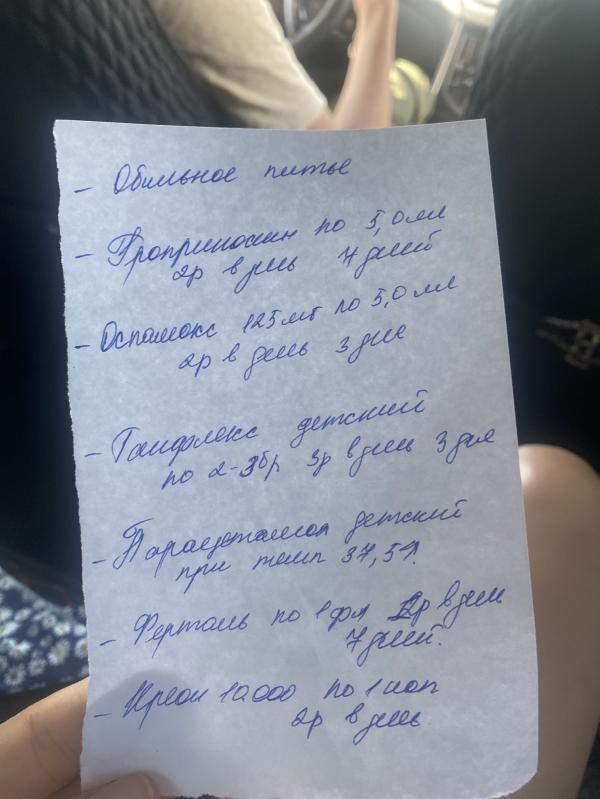 - Обильное питье
- Гроприносин по 5,0 мл
2р в день 7 дней
- Оспамокс 125мг по 5,0 мл
2р в день 3 дня
- Танфлекс детский
по 2-3бр 3р в день 3 дня
- Парацетамол детский
при темп 37,5
- Ферталь по 1 фл 2р в день
7 дней.
- Креон 10.000 по 1 кап
2р в день